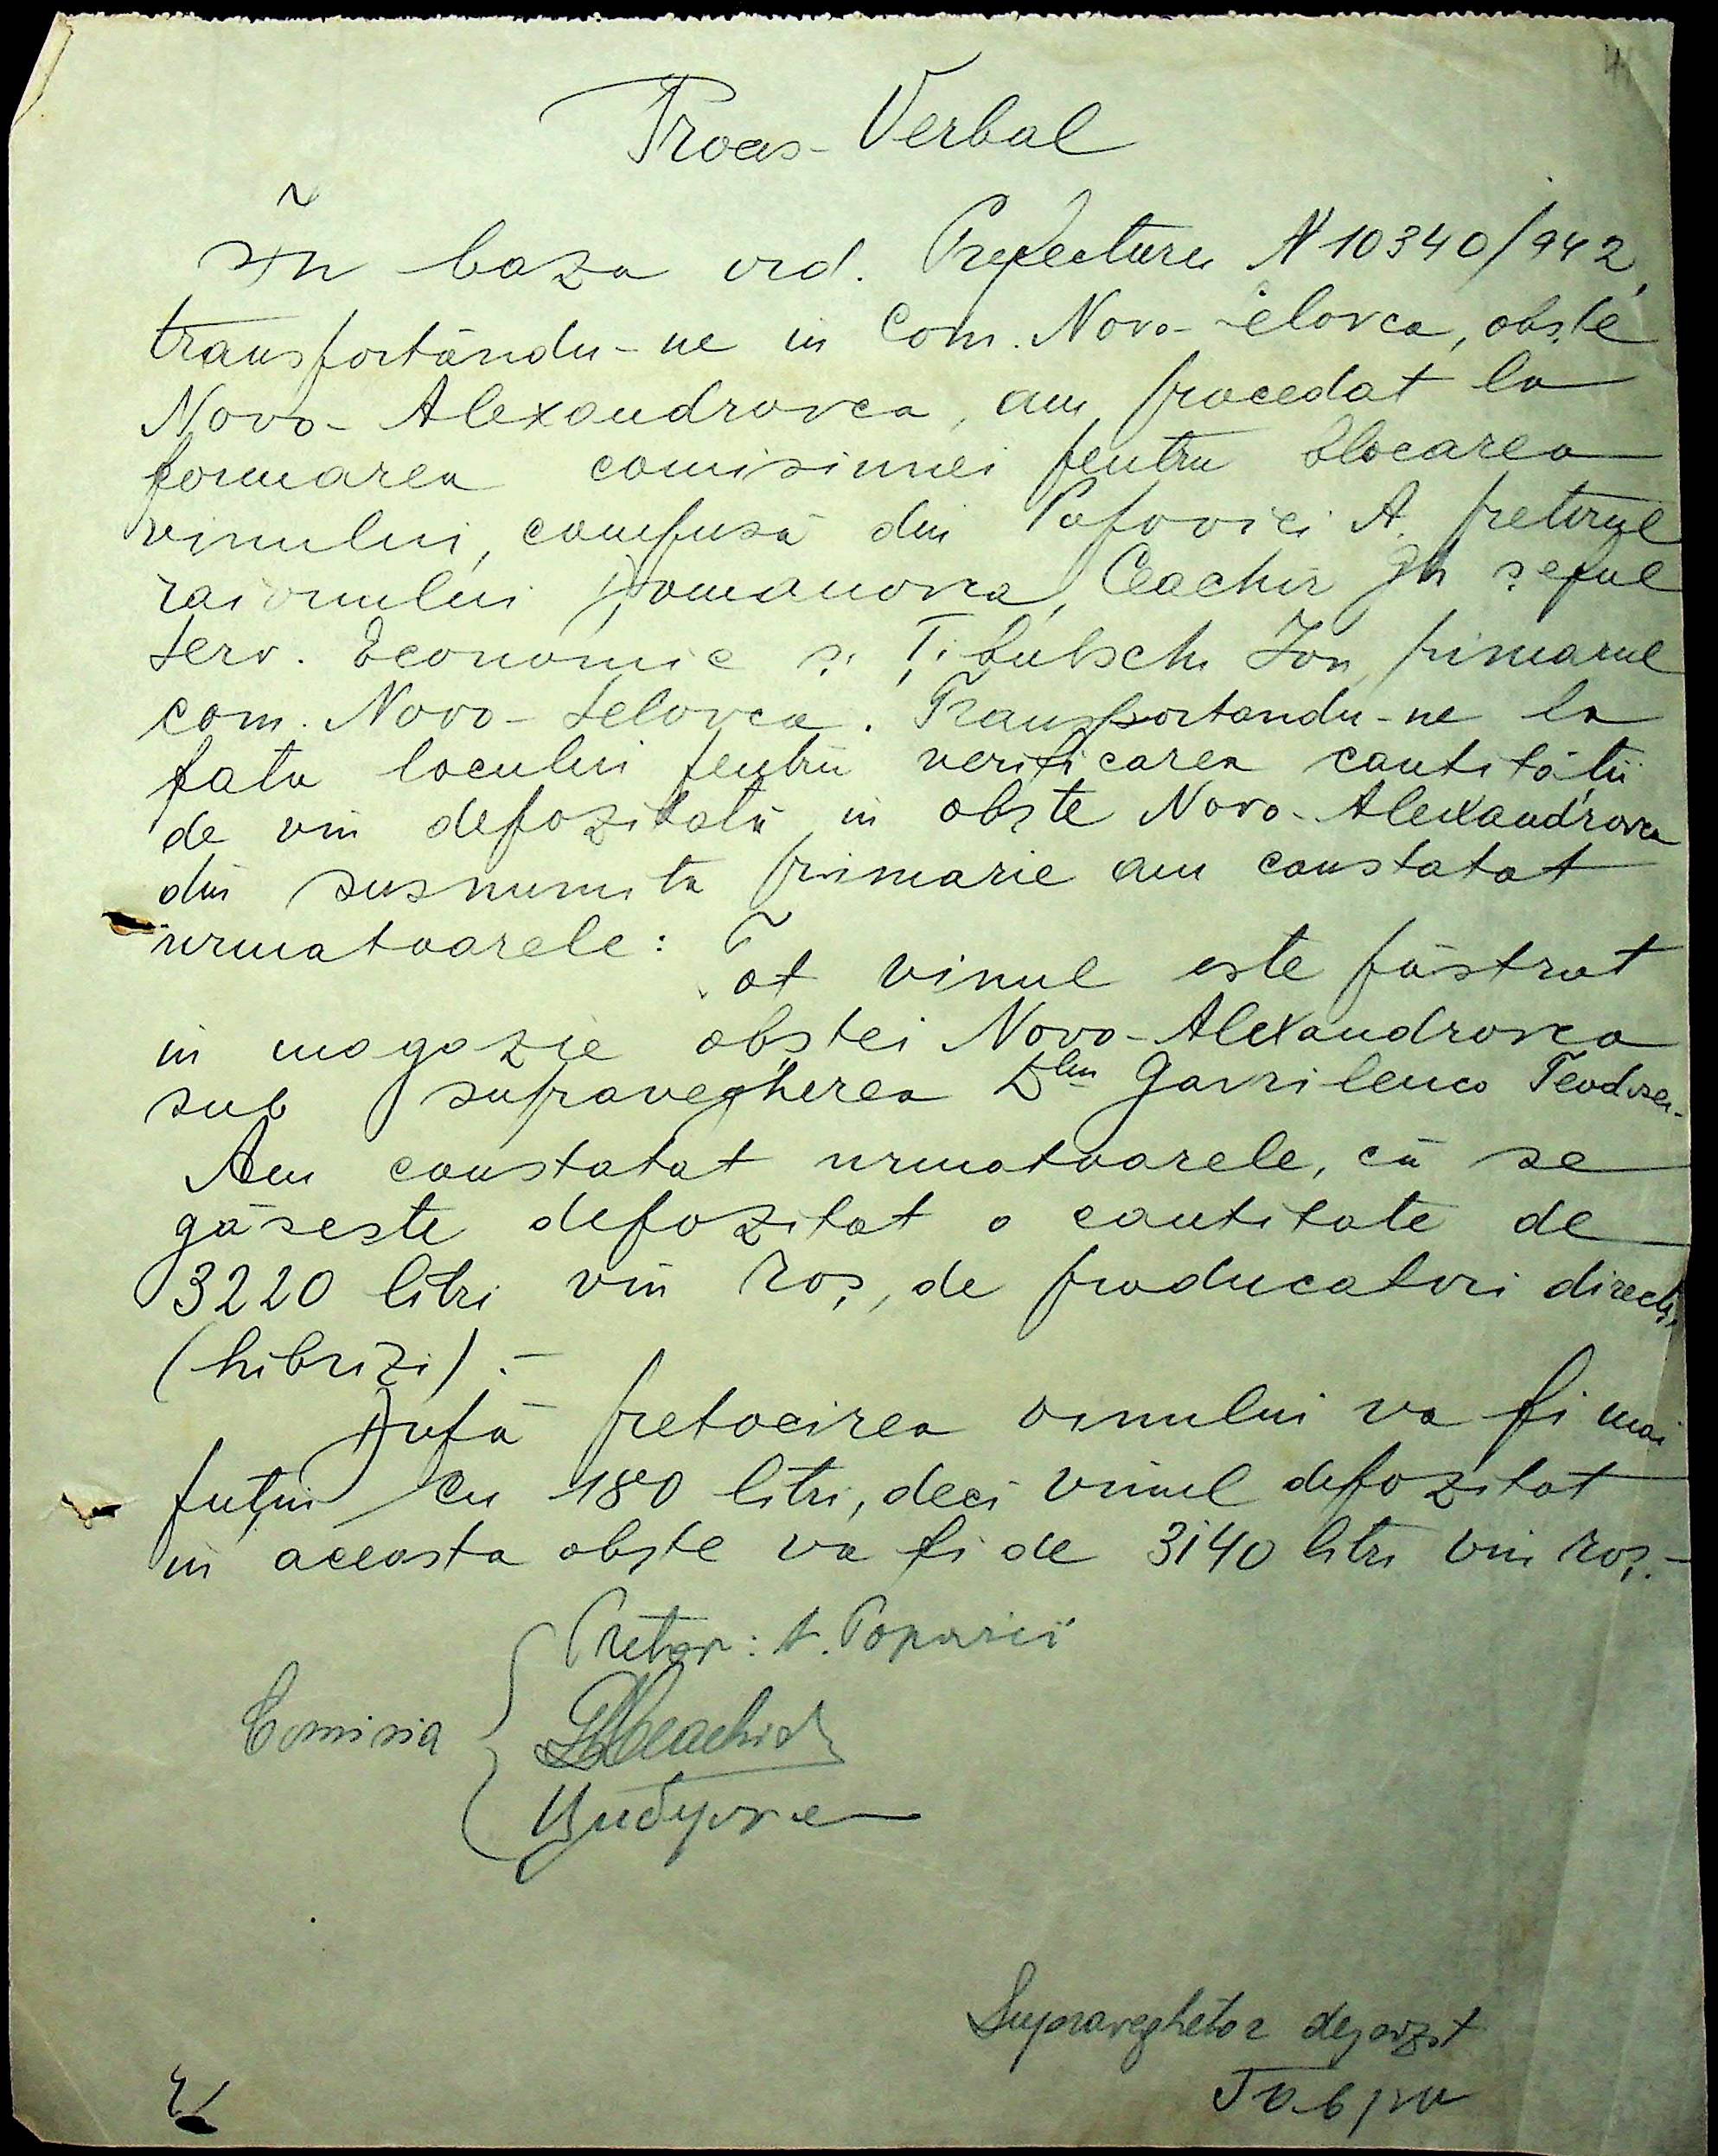 Proces-Verbal
În baza ord. Prefecturei N 10340/942,
transportându-ne in Com. Novo-Selovca, obște
Novo-Alexandrovca, am procedat la
formarea comisiunei pentru blocarea
vinului, compusă din Popovici A. pretorul
raionului Ianovca, Ceachir Gh șeful
Serv. Economic și Ion primarul
com. Novo-Selovca. Transportandu-ne la
fata locului pentru verificarea cantitătii
de vin depozitată in obște Novo-Alexandrovca
din susnumita primarie am constatat
urmatoarele: Tot vinul este păstrat
in magazie obștei Novo-Alexandrovca
sub supravegherea Dlui Gavrilenco Teodosei-
Am constatat urmatoarele, că se
găseste depozitat o cantitate de
3220 litri vin roș, de producatori directi,
(hibrizi).-
După pretocirea vinului va fi mai
puțin cu 180 litri, deci vinul depozitat
in aceasta obște va fi de 3140 litri vin roș.-
Pretor: A. Popovici
Comisia
Gh Ceachir
Supraveghetor depozit